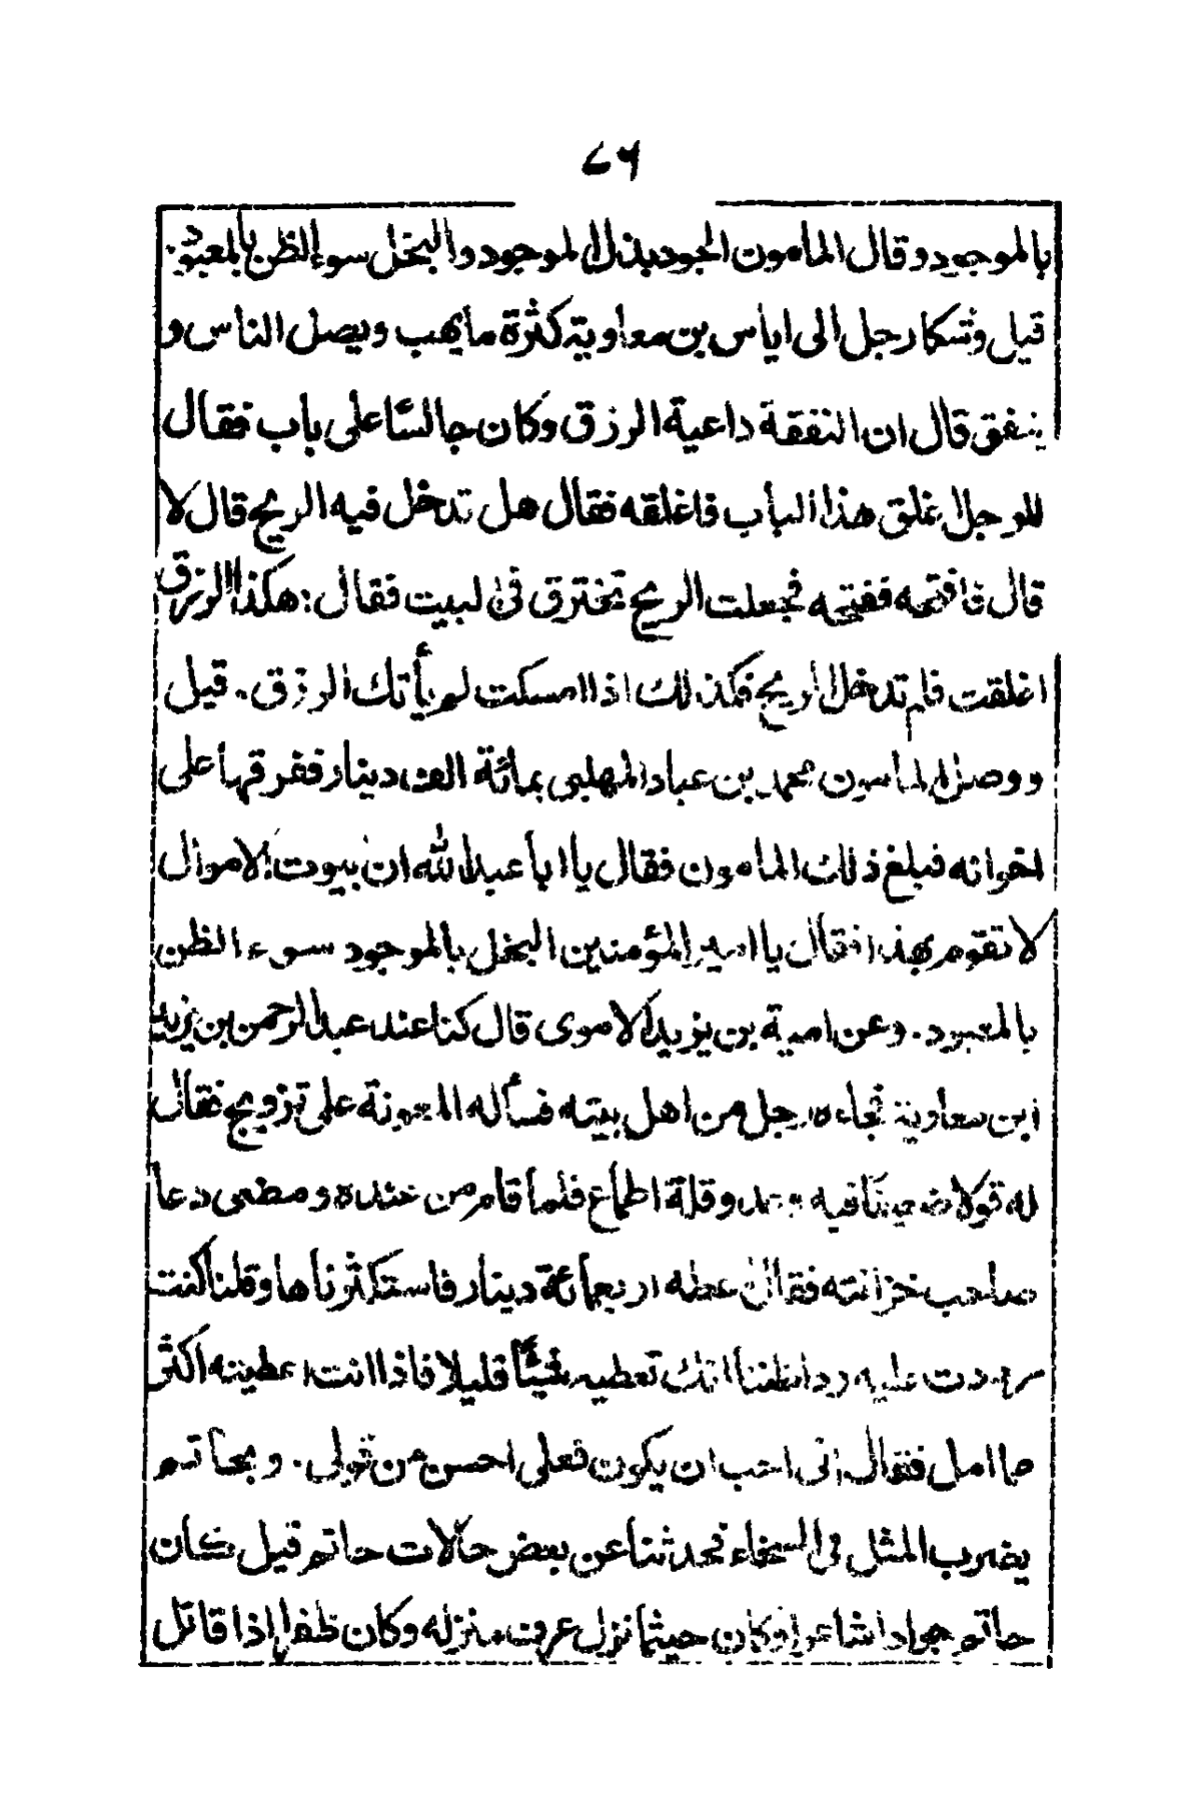 ٧٦
بالموجود وقال المامون الجود بذل الموجود والبخل سوء الظن بالمعبود.
قيل وشكا رجل الى اياس بن معاوية كثرة ما يهب ويصل الناس و
ينفق قال ان النفقة داعية الرزق وكان جالسًا على باب فقال
للرجل اغلق هذا الباب فاغلقه فقال هل تدخل فيه الريح قال لا
قال فافتحه ففتحه فجعلت الريح تخترق فى البيت فقال: هكذا الرزق
اغلقت فلم تدخل الريح فكذلك اذا امسكت لم يأتك الرزق. قيل
ووصل المامون محمد بن عباد المهلبى بمائة الف دينار ففرقها على
اخوانه فبلغ ذلك المامون فقال يا ابا عبد الله ان بيوت الاموال
لا تقوم بهذا فقال يا امير المؤمنين البخل بالموجود سوء الظن
بالمعبود. وعن امية بن يزيد الاموى قال كنا عند عبد الرحمن بن يزيد
ابن معاوية فجاءه رجل من اهل بيته فسأله المعونة على تزويج فقال
له قولا ضعيفًا فيه وعد وقلة اطماع فلما قام من عنده ومضى دعا
صاحب خزانته فقال اعطه اربعمائة دينار فاستكثرناها وقلنا كنت
رددت عليه ردا ظننا انك تعطيه شيئًا قليلا فاذا انت اعطيته اكثر
مما امل فقال انى احب ان يكون فعلى احسن من قولى. وبحاتم
يضرب المثل فى السخاء فحدثنا عن بعض حالات حاتم قيل كان
حاتم جوادا شاعرا وكان حيثما نزل عرف منزله وكان ظفرا اذا قاتل